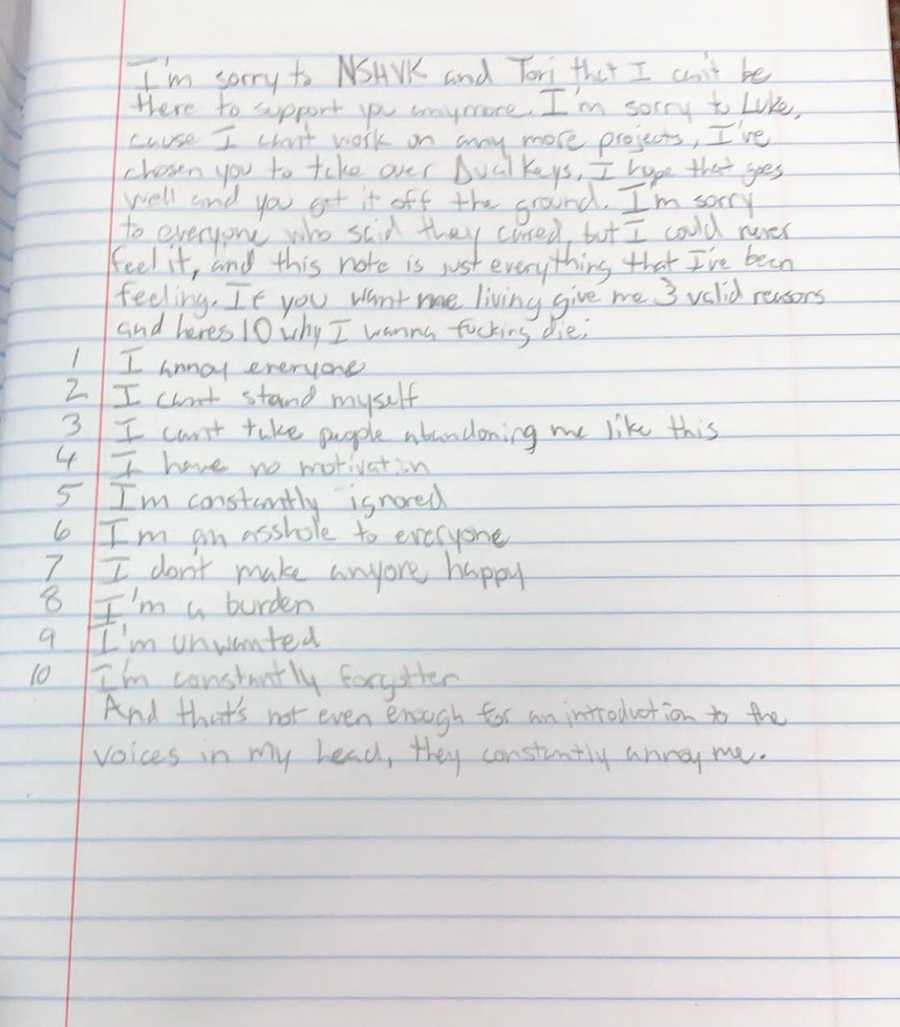 I'm sorry to NSHVK and Tori that I can't be
there to support you anymore. I'm sorry to Luke,
cause I can't work on any more projects, I've
chosen you to take over Dualkeys, I hope that goes
well and you get it off the ground. I'm sorry
to everyone who said they cared, but I could never
feel it, and this note is just everything that I've been
feeling. If you want me living give me 3 valid reasons
and heres 10 why I wanna fucking die:
1 I annoy everyone
2 I can't stand myself
3 I can't take people abandoning me like this
4 I have no motivation
5 I'm constantly ignored
6 I'm an asshole to everyone
7 I don't make anyone happy
8 I'm a burden
9 I'm unwanted
10 I'm constantly forgotten
And that's not even enough for an introduction to the
voices in my head, they constantly annoy me.